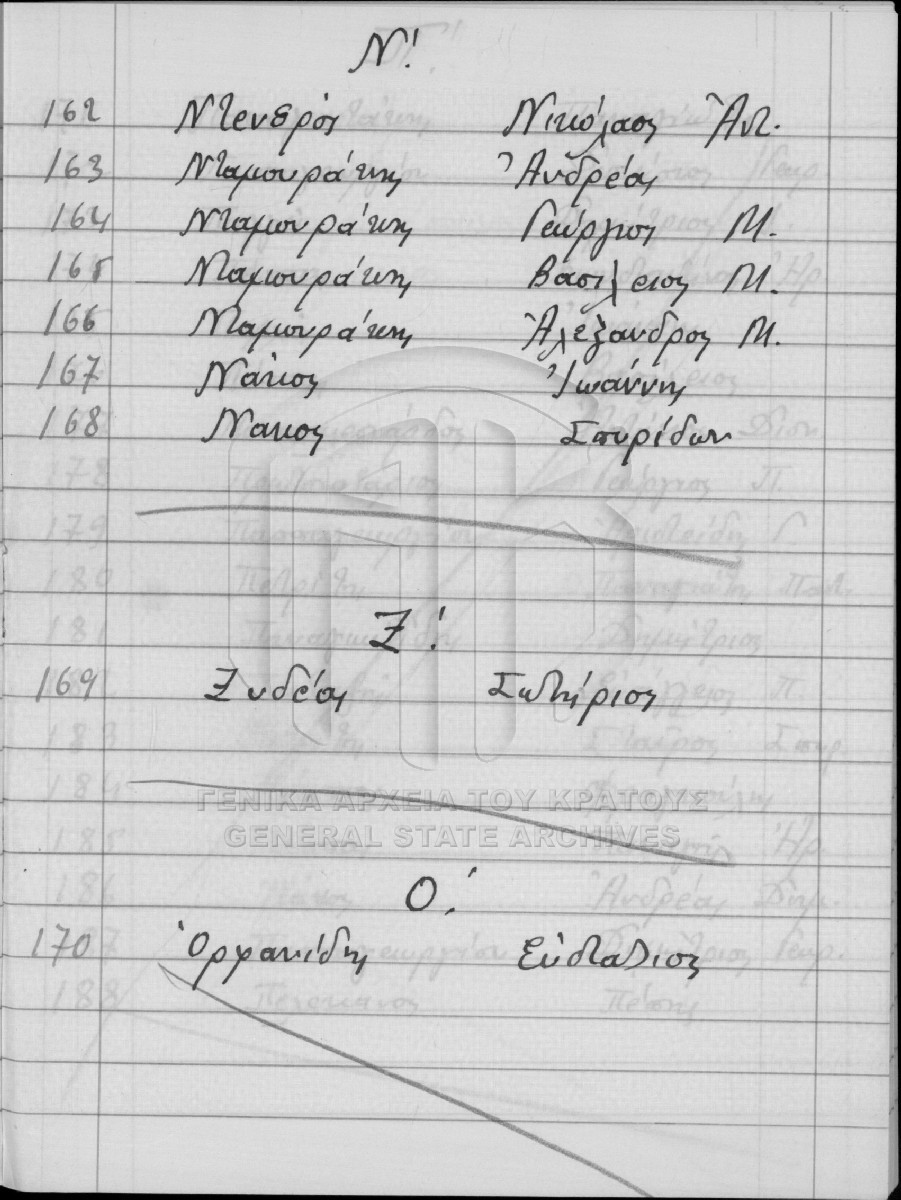 Ν!
162 Ντενδρος Νικόλαος Ἀντ.
163 Νταμουράκης Ἀνδρέας
164 Νταμουράκης Γεώργιος Μ.
165 Νταμουράκης Βασίλειος Μ.
166 Νταμουράκης Ἀλέξανδρος Μ.
167 Νάκος Ἰωάννης
168 Νάκος Σπυρίδων
Ξ!
169 Ξυδέας Σωτήριος
ΓΕΝΙΚΑ ΑΡΧΕΙΑ ΤΟΥ ΚΡΑΤΟΥΣ
GENERAL STATE ARCHIVES
Ο!
170 Ὀρφανίδης Εὐστάθιος